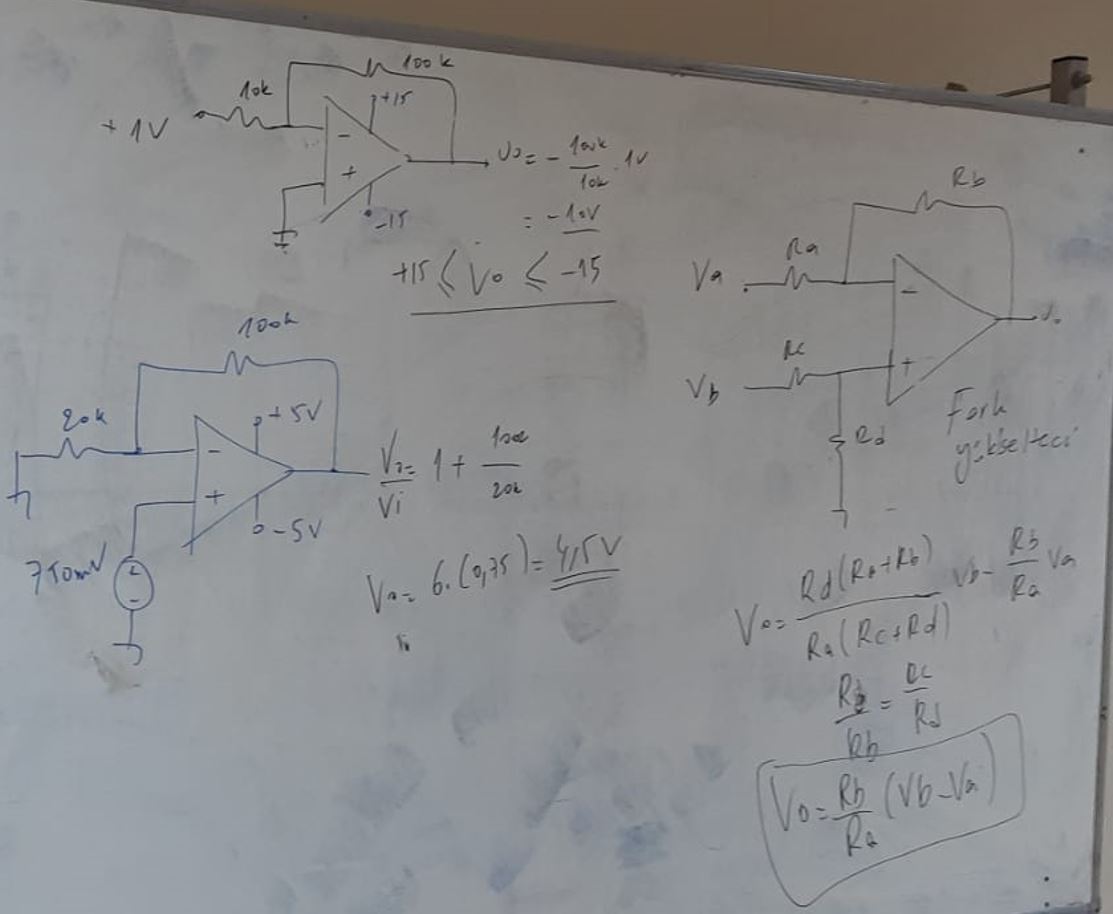 100k
10k
+15
+ 1V
-
+
-15
Vo = - 100k/10k . 1V
= -10V
+15 ≤ Vo ≤ -15
100k
20k
+5V
-
+
-5V
750mV
+
-
Vo/Vi = 1 + 100k/20k
Vo = 6.(0,75) = 4,5V
Rb
Ra
Va
-
Vo
Rc
Vb
+
Rd
Fark
yükselteci
Vo = Rd(Ra+Rb)/Ra(Rc+Rd) Vb - Rb/Ra Va
Ra/Rb = Rc/Rd
Vo = Rb/Ra (Vb-Va)